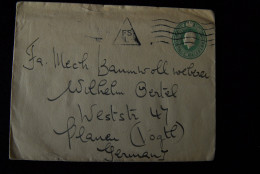 FS
Fa. Mech Baumwollweberei
Wilhelm Bertel
Weststr 47
Plauen (Vogtl)
Germany